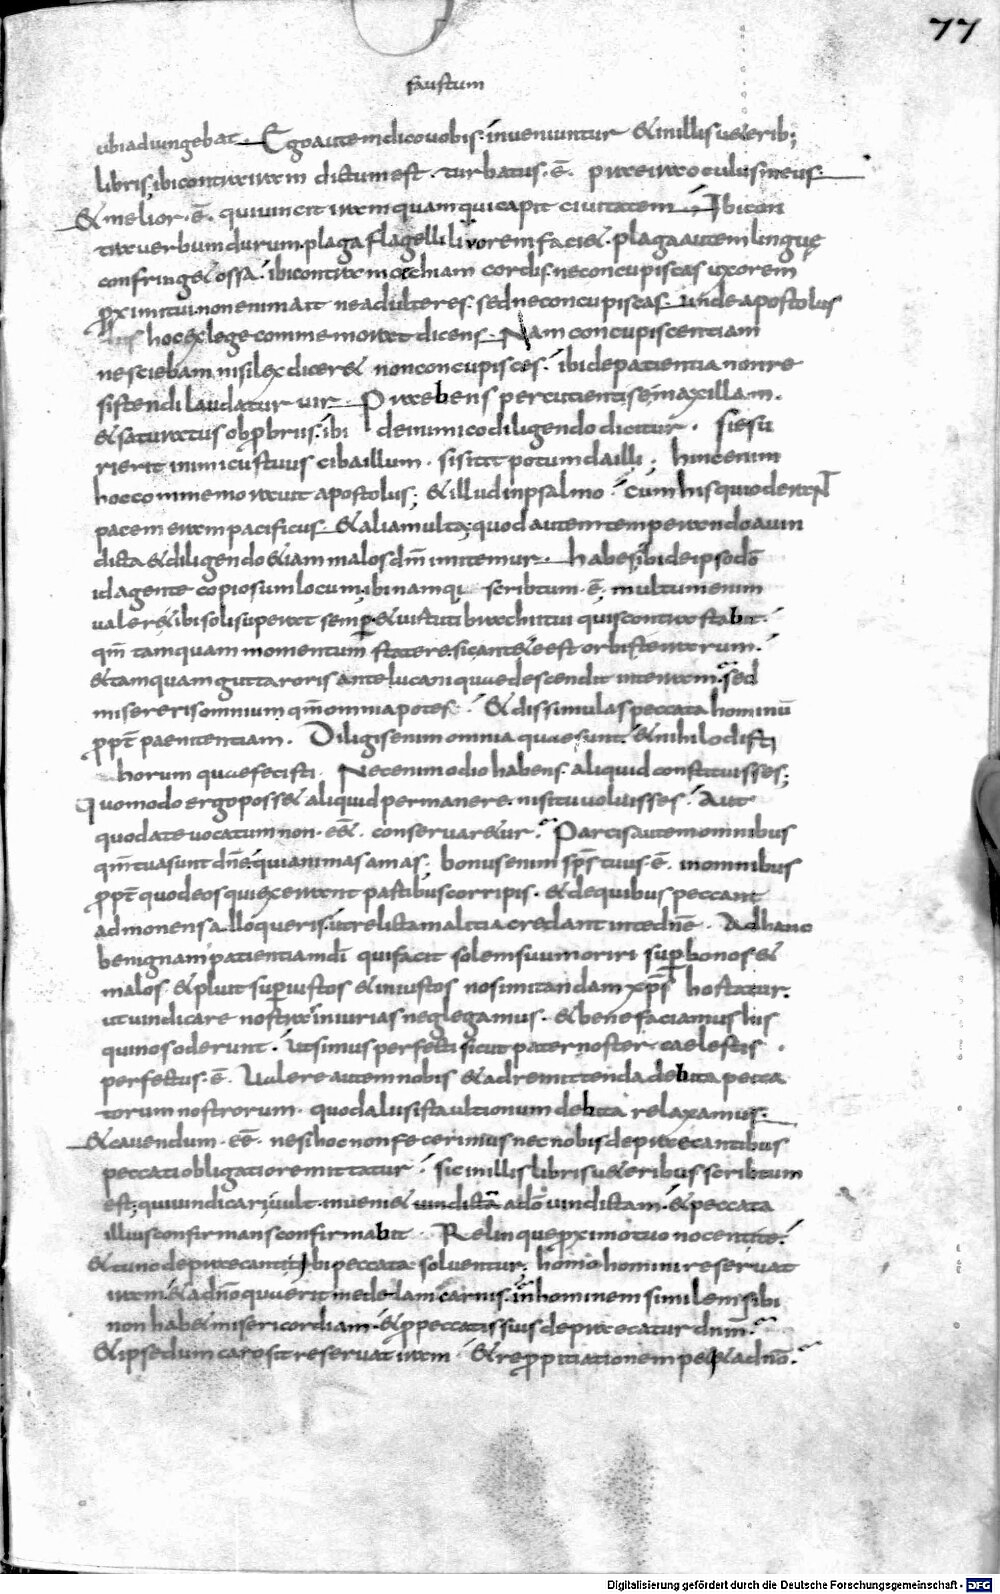 77
faustum
ubi adiungebat. Ego autem dico uobis. inueniuntur & in illis ueterib;
libris; ibi contra iram dictum est. turbatus. ē. prae ira oculus meus.
& melior. ē. qui uincit iram quam qui capit ciuitatem. Ibi con
tra uerbum durum. plaga flagelli liuorem faci&. plaga autem linguę
confring& ossa. ibi contra moechiam cordis. ne concupiscas uxorem
proximi tui. non enim ait ne adulteres. sed ne concupiscas. unde apostolus
hoc ex lege commemorat dicens. Nam concupiscentiam
nesciebam nisi lex dicer& non concupisces. ibi de patientia non re
sistendi laudatur uir. Praebens percutienti se maxillam.
& saturatus obprobriis. ibi de inimico diligendo dicitur. si esu
rierit inimicus tuus ciba illum. si sitit potum da illi; hinc enim
hoc commemorauit apostolus; & illud in psalmo. cum his qui oderant
pacem eram pacificus. & alia multa; quod autem temperando a uin
dicta & diligendo &iam malos dm̄ imitemur. habes ibi de ipso dō
id agente copiosum locum; ibi namq; scribtum. ē; multum enim
ualere tibi soli superat semper & uirtuti brachii tui quis contra stabit.
qm̄ tamquam momentum staterę. sic ante te est orbis terrarum.
& tamquam gutta roris antelucani quae descendit in terram. sed
misereris omnium qm̄ omnia potes. & dissimulas peccata hominū
propt̄ paenitentiam. Diligis enim omnia quae sunt. & nihil odisti
horum quae fecisti. Nec enim odio habens. aliquid constituisses;
Quomodo ergo poss& aliquid permanere. nisi tu uoluisses. Aut
quod a te uocatum non. ess&. conseruar&ur. Parcis autem omnibus
qm̄ tua sunt dnē. qui animas amas; bonus enim sps̄ tuus. ē. in omnibus
propt̄ quod eos qui exerrant partibus corripis. & de quibus peccant
admonens alloqueris. ut relicta malitia credant in te dnē. Ad hanc
benignam patientiam dī qui facit solem suum oriri super bonos &
malos & pluit super iustos & iniustos nos imitandam xps̄ hortatur.
ut uindicare nostras iniurias neglegamus. & bene faciamus his
qui nos oderunt. ut simus perfecti sicut pater noster caelestis.
perfectus. ē. Ualere autem nobis & ad remittenda debita pecca
torum nostrorum. quod alus ista ultionum debita relaxamus.
& cauendum. eē. ne si hoc non fecerimus nec nobis deprecantibus
peccati obligatio remittatur. sic in illis libris u&eribus scribtum
est; qui uindicari uult. inueni& uindictā a dō uindictam. & peccata
illius confirmans confirmabit. Relinque proximo tuo nocenti te.
& tunc deprecanti tibi peccata soluentur. homo homini reseruat
iram & a dnō quaerit medelam carnis. in hominem similem sibi
non hab& misericordiam. & pro peccatis suis deprecatur dnm̄.
& ipse dum caro sit reseruat iram & repropitiationem pet& a dnō.
Digitalisierung gefördert durch die Deutsche Forschungsgemeinschaft - DFG